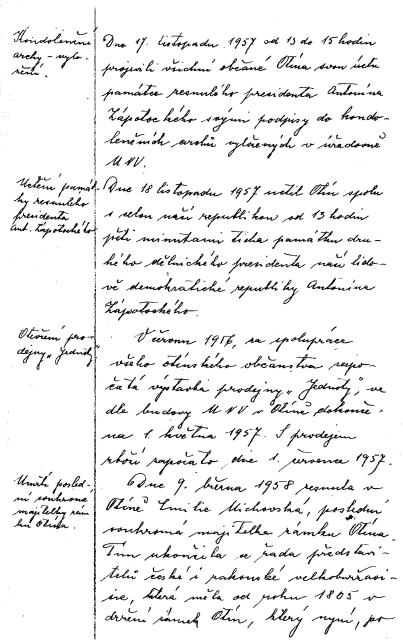 Kondolenční
archy - vylo-
žení.
Dne 17. listopadu 1957 od 13 do 15 hodin
projevili všichni občané Otína svou úctu
památce zesnulého presidenta Antonína
Zápotockého svými podpisy do kondo-
lenčních archů vyložených v úřadovně
MNV.
Uctění památ-
ky zesnulého
presidenta
Ant. Zápotockého
Dne 18 listopadu 1957 uctil Otín spolu
s celou naší republikou od 13 hodin
pěti minutami ticha památku dru-
hého dělnického presidenta naší lido-
vě demokratické republiky Antonína
Zápotockého.
Otevření pro-
dejny „Jednoty"
V červnu 1956, za spolupráce
všeho otínského občanstva zapo-
čatá výstavba prodejny „Jednoty", ve
dle budovy MNV v Otíně dokonče-
na 1. května 1957. S prodejem
zboží započato dne 1. července 1957.
Úmrtí posled-
ní soukromé
majitelky zám-
ku Otína.
Dne 9. března 1958 zesnula v
Otíně Emilie Michovská, poslední
soukromá majitelka zámku Otína.
Tím ukončila se řada představi-
telů české i rakouské velkoburžoa-
sie, která měla od roku 1805 v
držení zámek Otín, který nyní, po